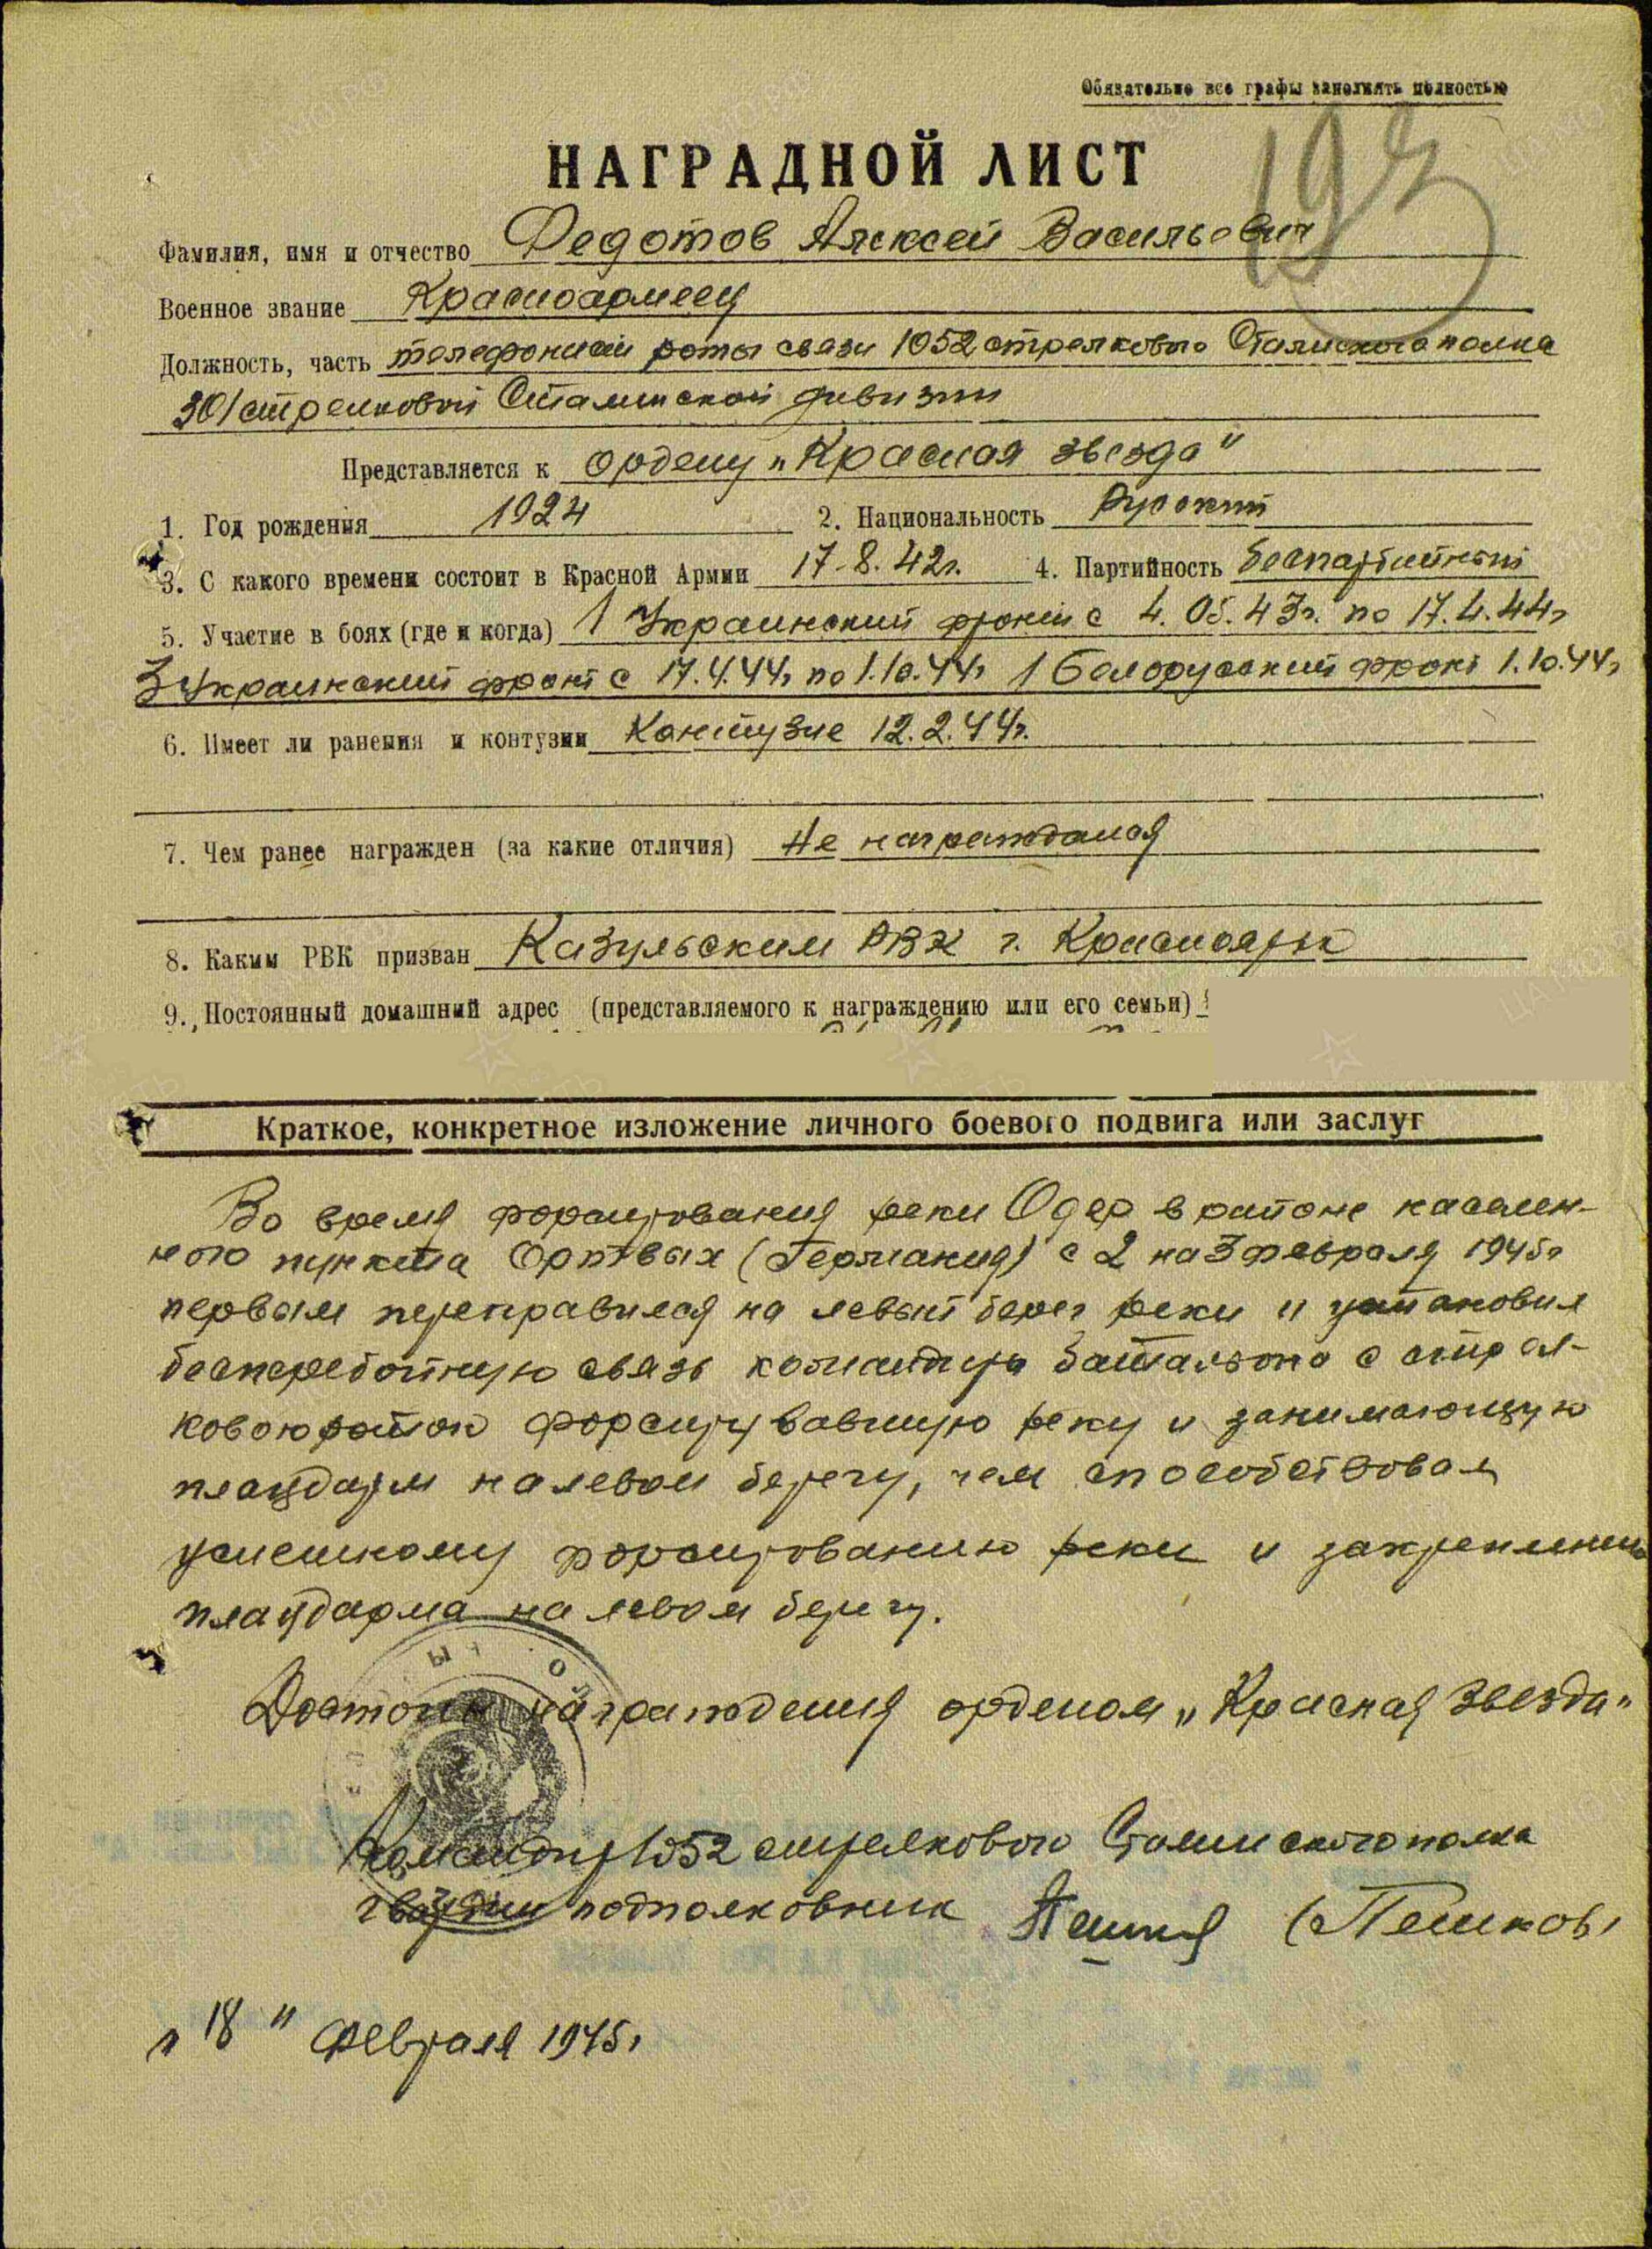 Обязательно все графы заполнять полностью
193
НАГРАДНОЙ ЛИСТ
Фамилия, имя и отчество Федотов Алексей Васильевич
Военное звание Красноармеец
Должность, часть телефонист роты связи 1052 стрелкового Сталинского полка
301 стрелковой Сталинской дивизии
Представляется к ордену „Красная звезда"
1. Год рождения 1924 2. Национальность Русский
3. С какого времени состоит в Красной Армии 17.8.42г. 4. Партийность беспартийный
5. Участие в боях (где и когда) 1 Украинский фронт с 4. 05. 43г. по 17.4.44г
3 Украинский фронт с 17.4.44г по 1.10.44г 1 Белорусский фронт 1.10.44г
6. Имеет ли ранения и контузии Контузие 12.2.44г.
7. Чем ранее награжден (за какие отличия) Не награждался
8. Каким РВК призван Казульским РВК г. Красноярск
9. Постоянный домашний адрес (представляемого к награждению или его семьи)
Краткое, конкретное изложение личного боевого подвига или заслуг
Во время форсирования реки Одер в районе населен-
ного пункта Ортвых (Германия) с 2 на 3 февраля 1945г
первым переправился на левый берег реки и установил
бесперебойную связь командира батальона с стрел-
ковою ротою форсировавшую реку и занимающую
плацдарм на левом берегу, чем способствовал
успешному форсированию реки и закреплению
плацдарма на левом берегу.
Достоин награждения орденом „Красная Звезда"
Командир 1052 стрелкового Сталинского полка
гвардии подполковник (Пешков)
„18" февраля 1945г